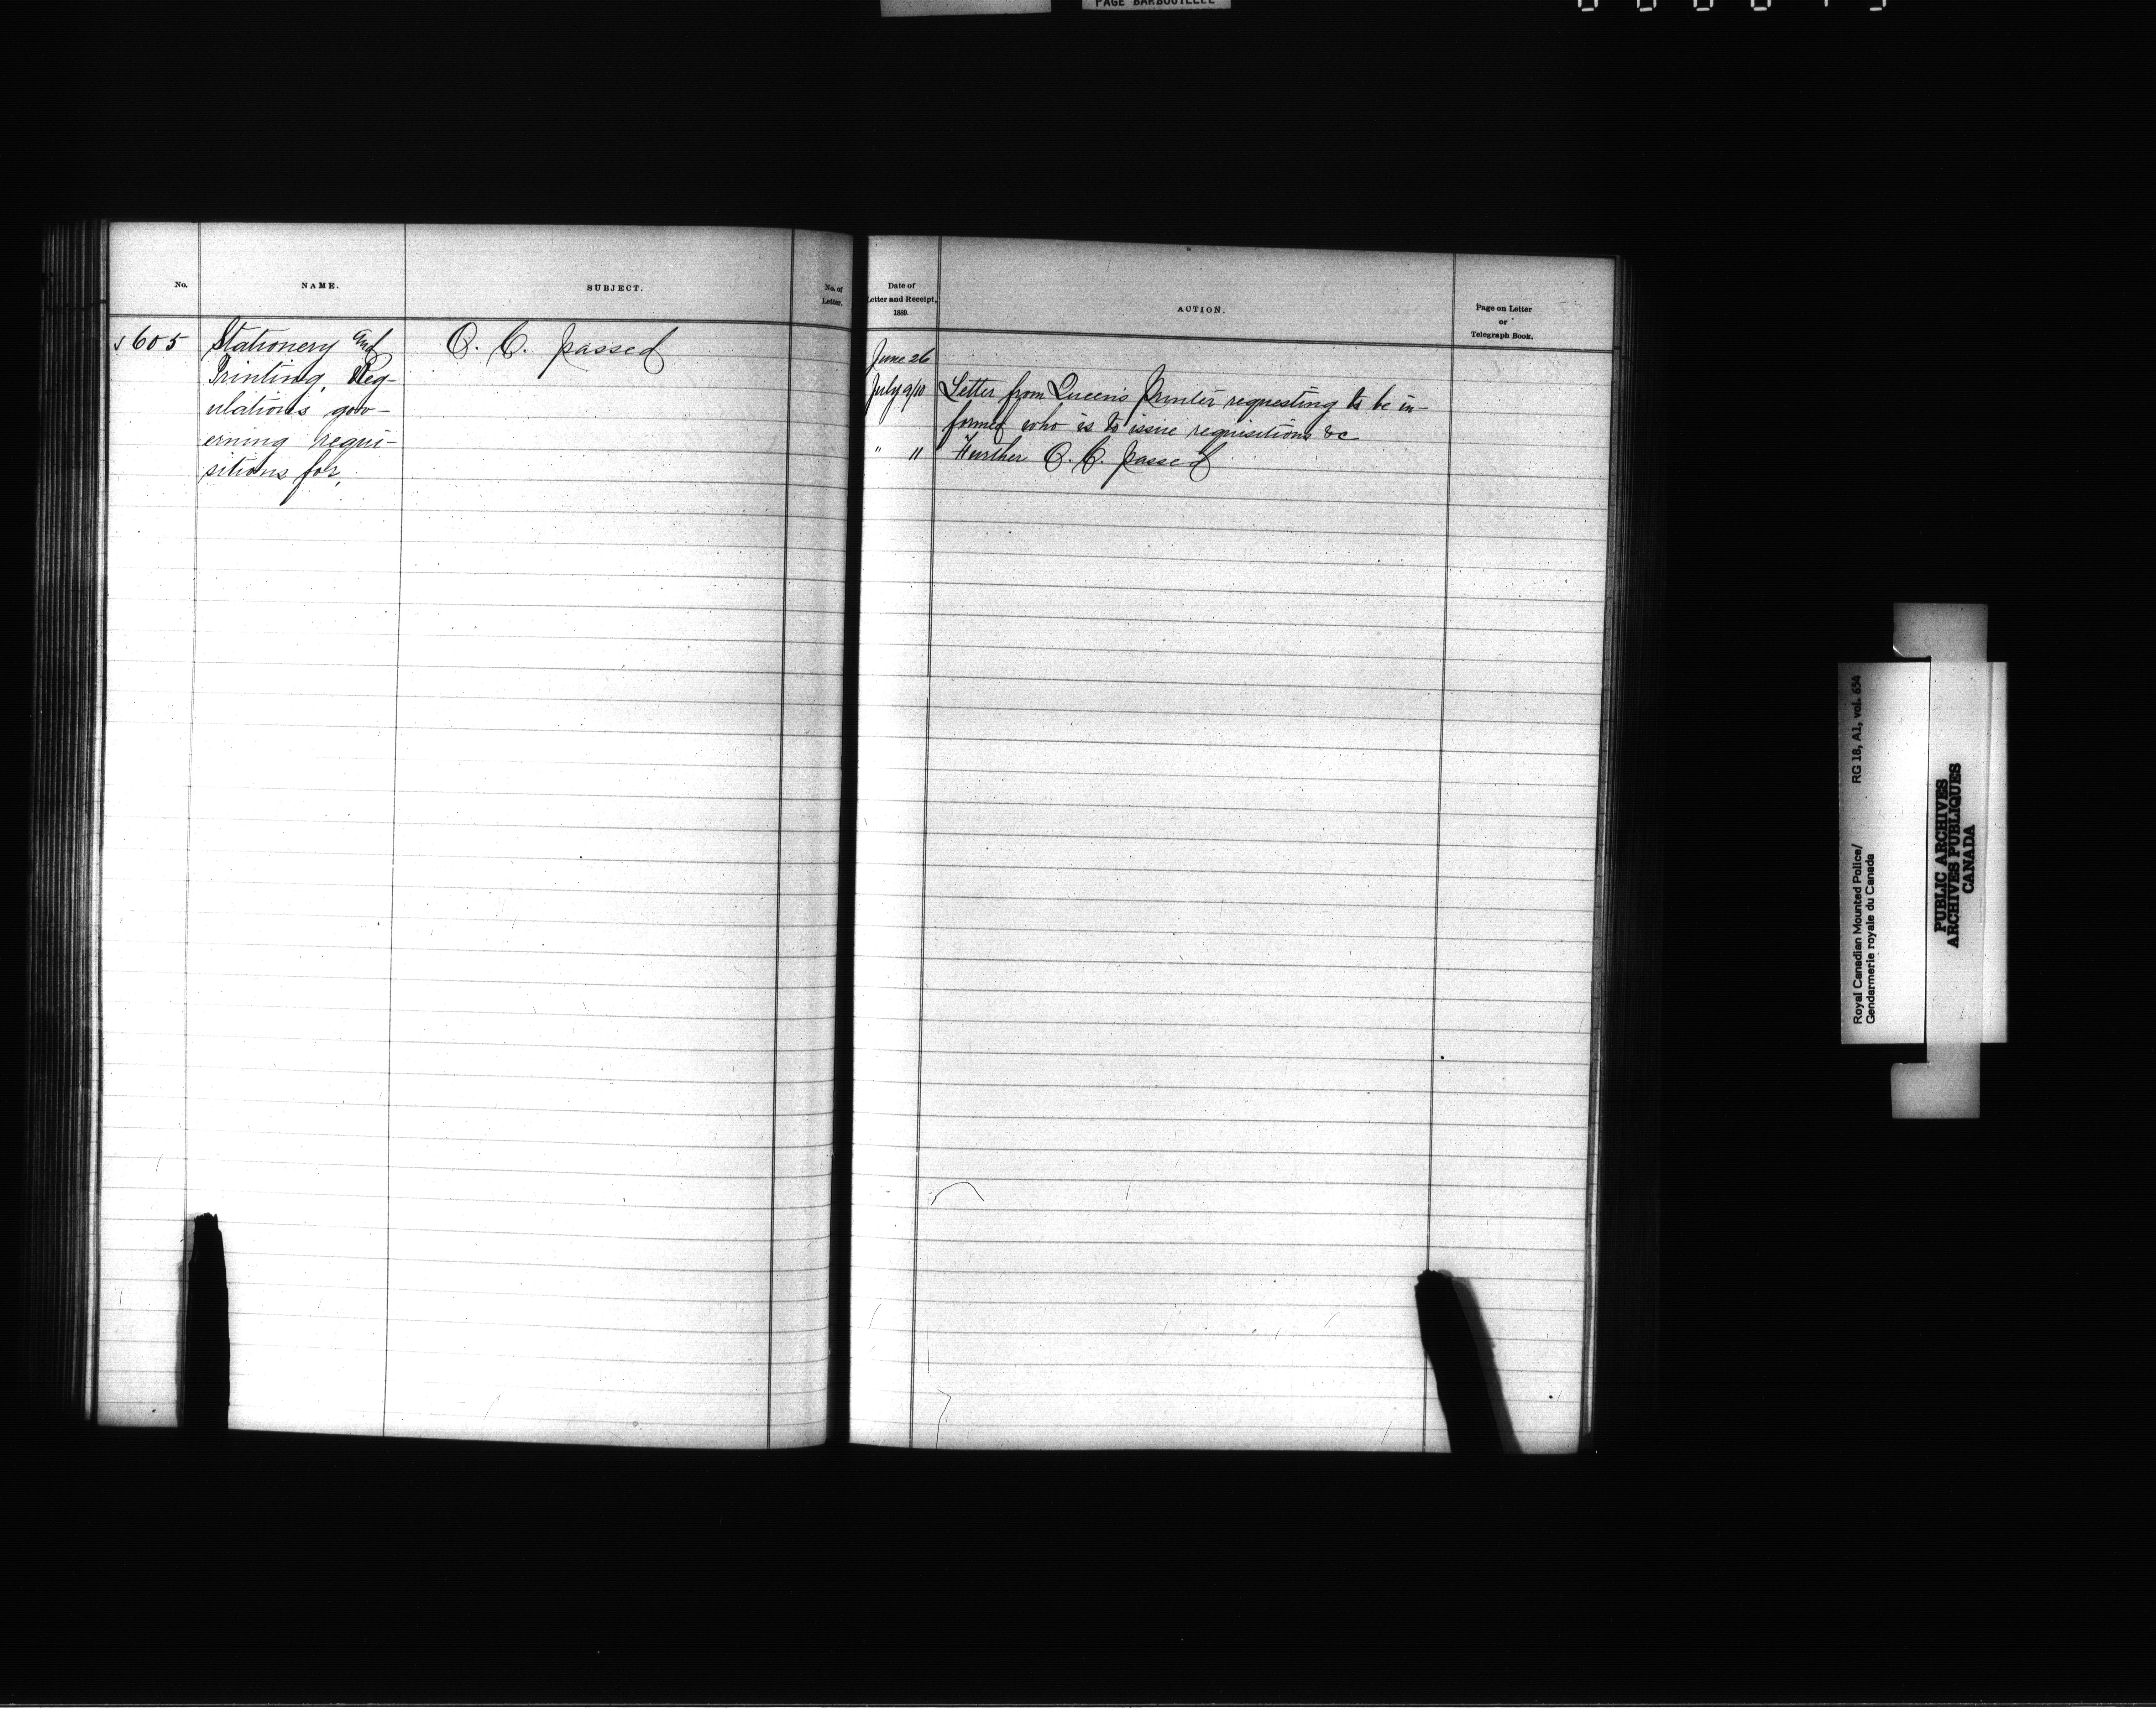 PAGE BARBOUILLEE
No.
NAME.
SUBJECT.
No. of
Letter.
605
Stationery and
Printing, Reg-
ulations gov-
erning requi-
sitions for,
O. C. passed
Date of
Letter and Receipt,
1889.
ACTION.
Page on Letter
or
Telegraph Book.
June 26
July 9/10 Letter from Queen's Printer requesting to be in-
formed who is to issue requisitions &c
" 11 Further O. C. passed
Royal Canadian Mounted Police/ RG 18, A1, vol. 654
Gendarmerie royale du Canada
PUBLIC ARCHIVES
ARCHIVES PUBLIQUES
CANADA